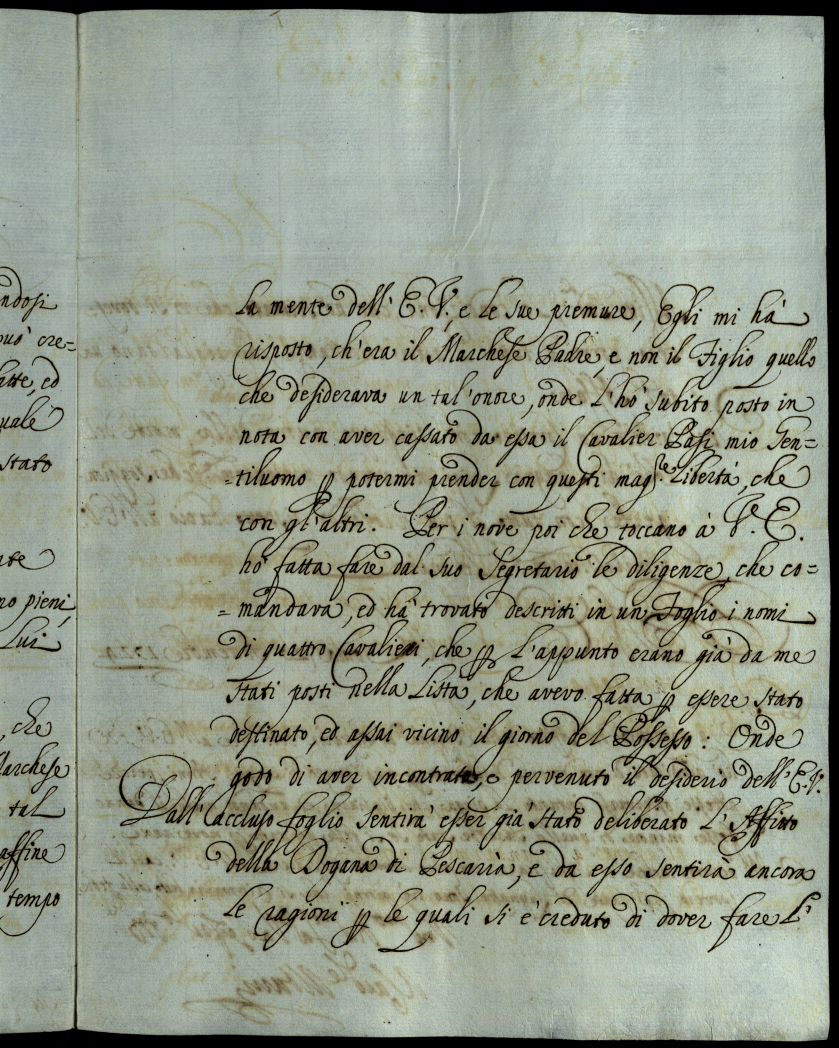 ndosi
può cre=
atte, ed
uale
stato
ate
no pieni
Lui
, che
Marchese
tal
affine
tempo
la mente dell' E. V., e le sue premure, Egli mi hà
risposto, ch'era il Marchese Padre, e non il Figlio quello
che desiderava un tal'onore, onde l'hò subito posto in
nota con aver cassato da essa il Cavalier Pasi mio Gen=
=tiluomo ꝑ potermi prender con questi magre. libertà, che
con gl'altri. Per i nove poi che toccano à V. E.
hò fatta fare dal suo Segretario le diligenze, che co=
=mandava, ed hà trovato descritti in un Foglio i nomi
di quattro Cavalieri, che ꝑ l'appunto erano già da me
stati posti nella Lista, che avevo fatta ꝑ essere stato
destinato, ed assai vicino il giorno del Possesso: Onde
godo di aver incontrato, e pervenuto il desiderio dell'E. V.
Dall'accluso foglio sentirà esser già stato deliberato l'Affitto
della Dogana di Pescaria, e da esso sentirà ancora
le ragioni ꝑ le quali si è creduto di dover fare l'